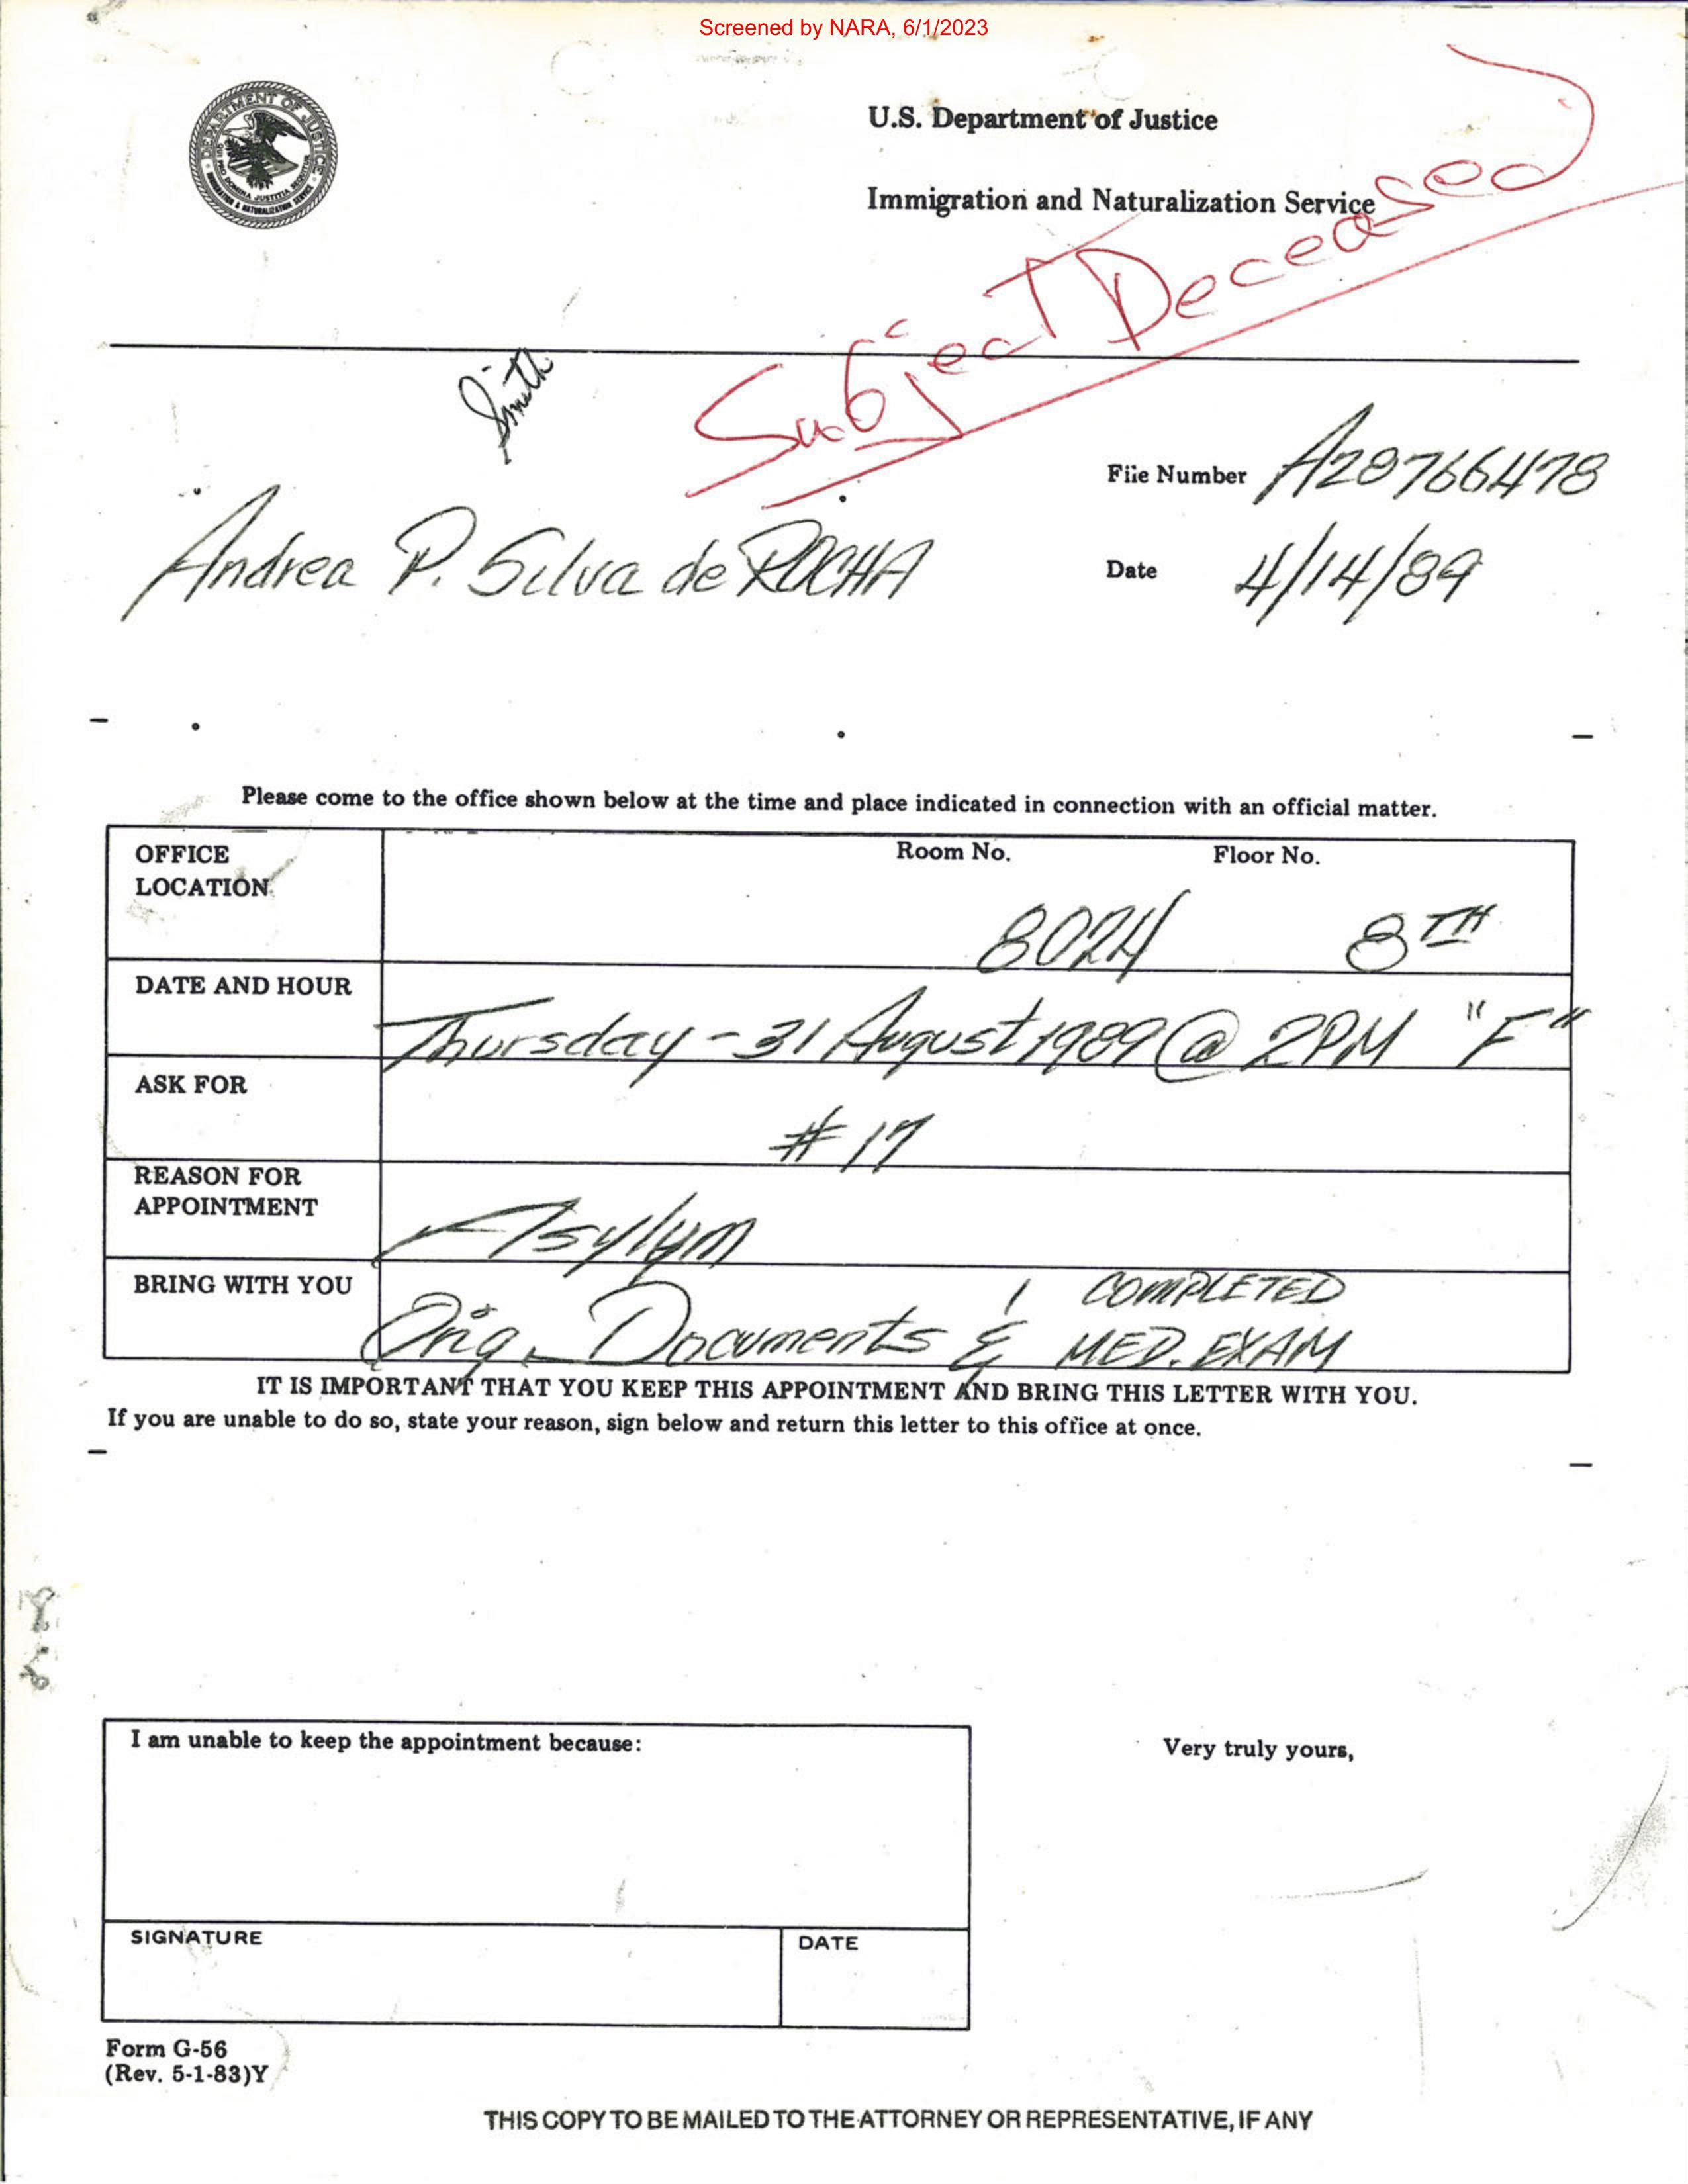 Screened by NARA, 6/1/2023
DEPARTMENT OF JUSTICE
QUI PRO DOMINA JUSTITIA SEQUITUR
IMMIGRATION & NATURALIZATION SERVICE
U.S. Department of Justice
Immigration and Naturalization Service
Subject Deceased
Smith
File Number A28766478
Andrea P. Silva de ROCHA
Date 4/14/89
Please come to the office shown below at the time and place indicated in connection with an official matter.
OFFICE LOCATION Room No. 8024 Floor No. 8TH
DATE AND HOUR Thursday - 31 August 1989 @ 2PM "F"
ASK FOR # 17
REASON FOR APPOINTMENT Asylum
BRING WITH YOU Orig. Documents & COMPLETED MED. EXAM
IT IS IMPORTANT THAT YOU KEEP THIS APPOINTMENT AND BRING THIS LETTER WITH YOU.
If you are unable to do so, state your reason, sign below and return this letter to this office at once.
I am unable to keep the appointment because:
Very truly yours,
SIGNATURE DATE
Form G-56
(Rev. 5-1-83)Y
THIS COPY TO BE MAILED TO THE ATTORNEY OR REPRESENTATIVE, IF ANY